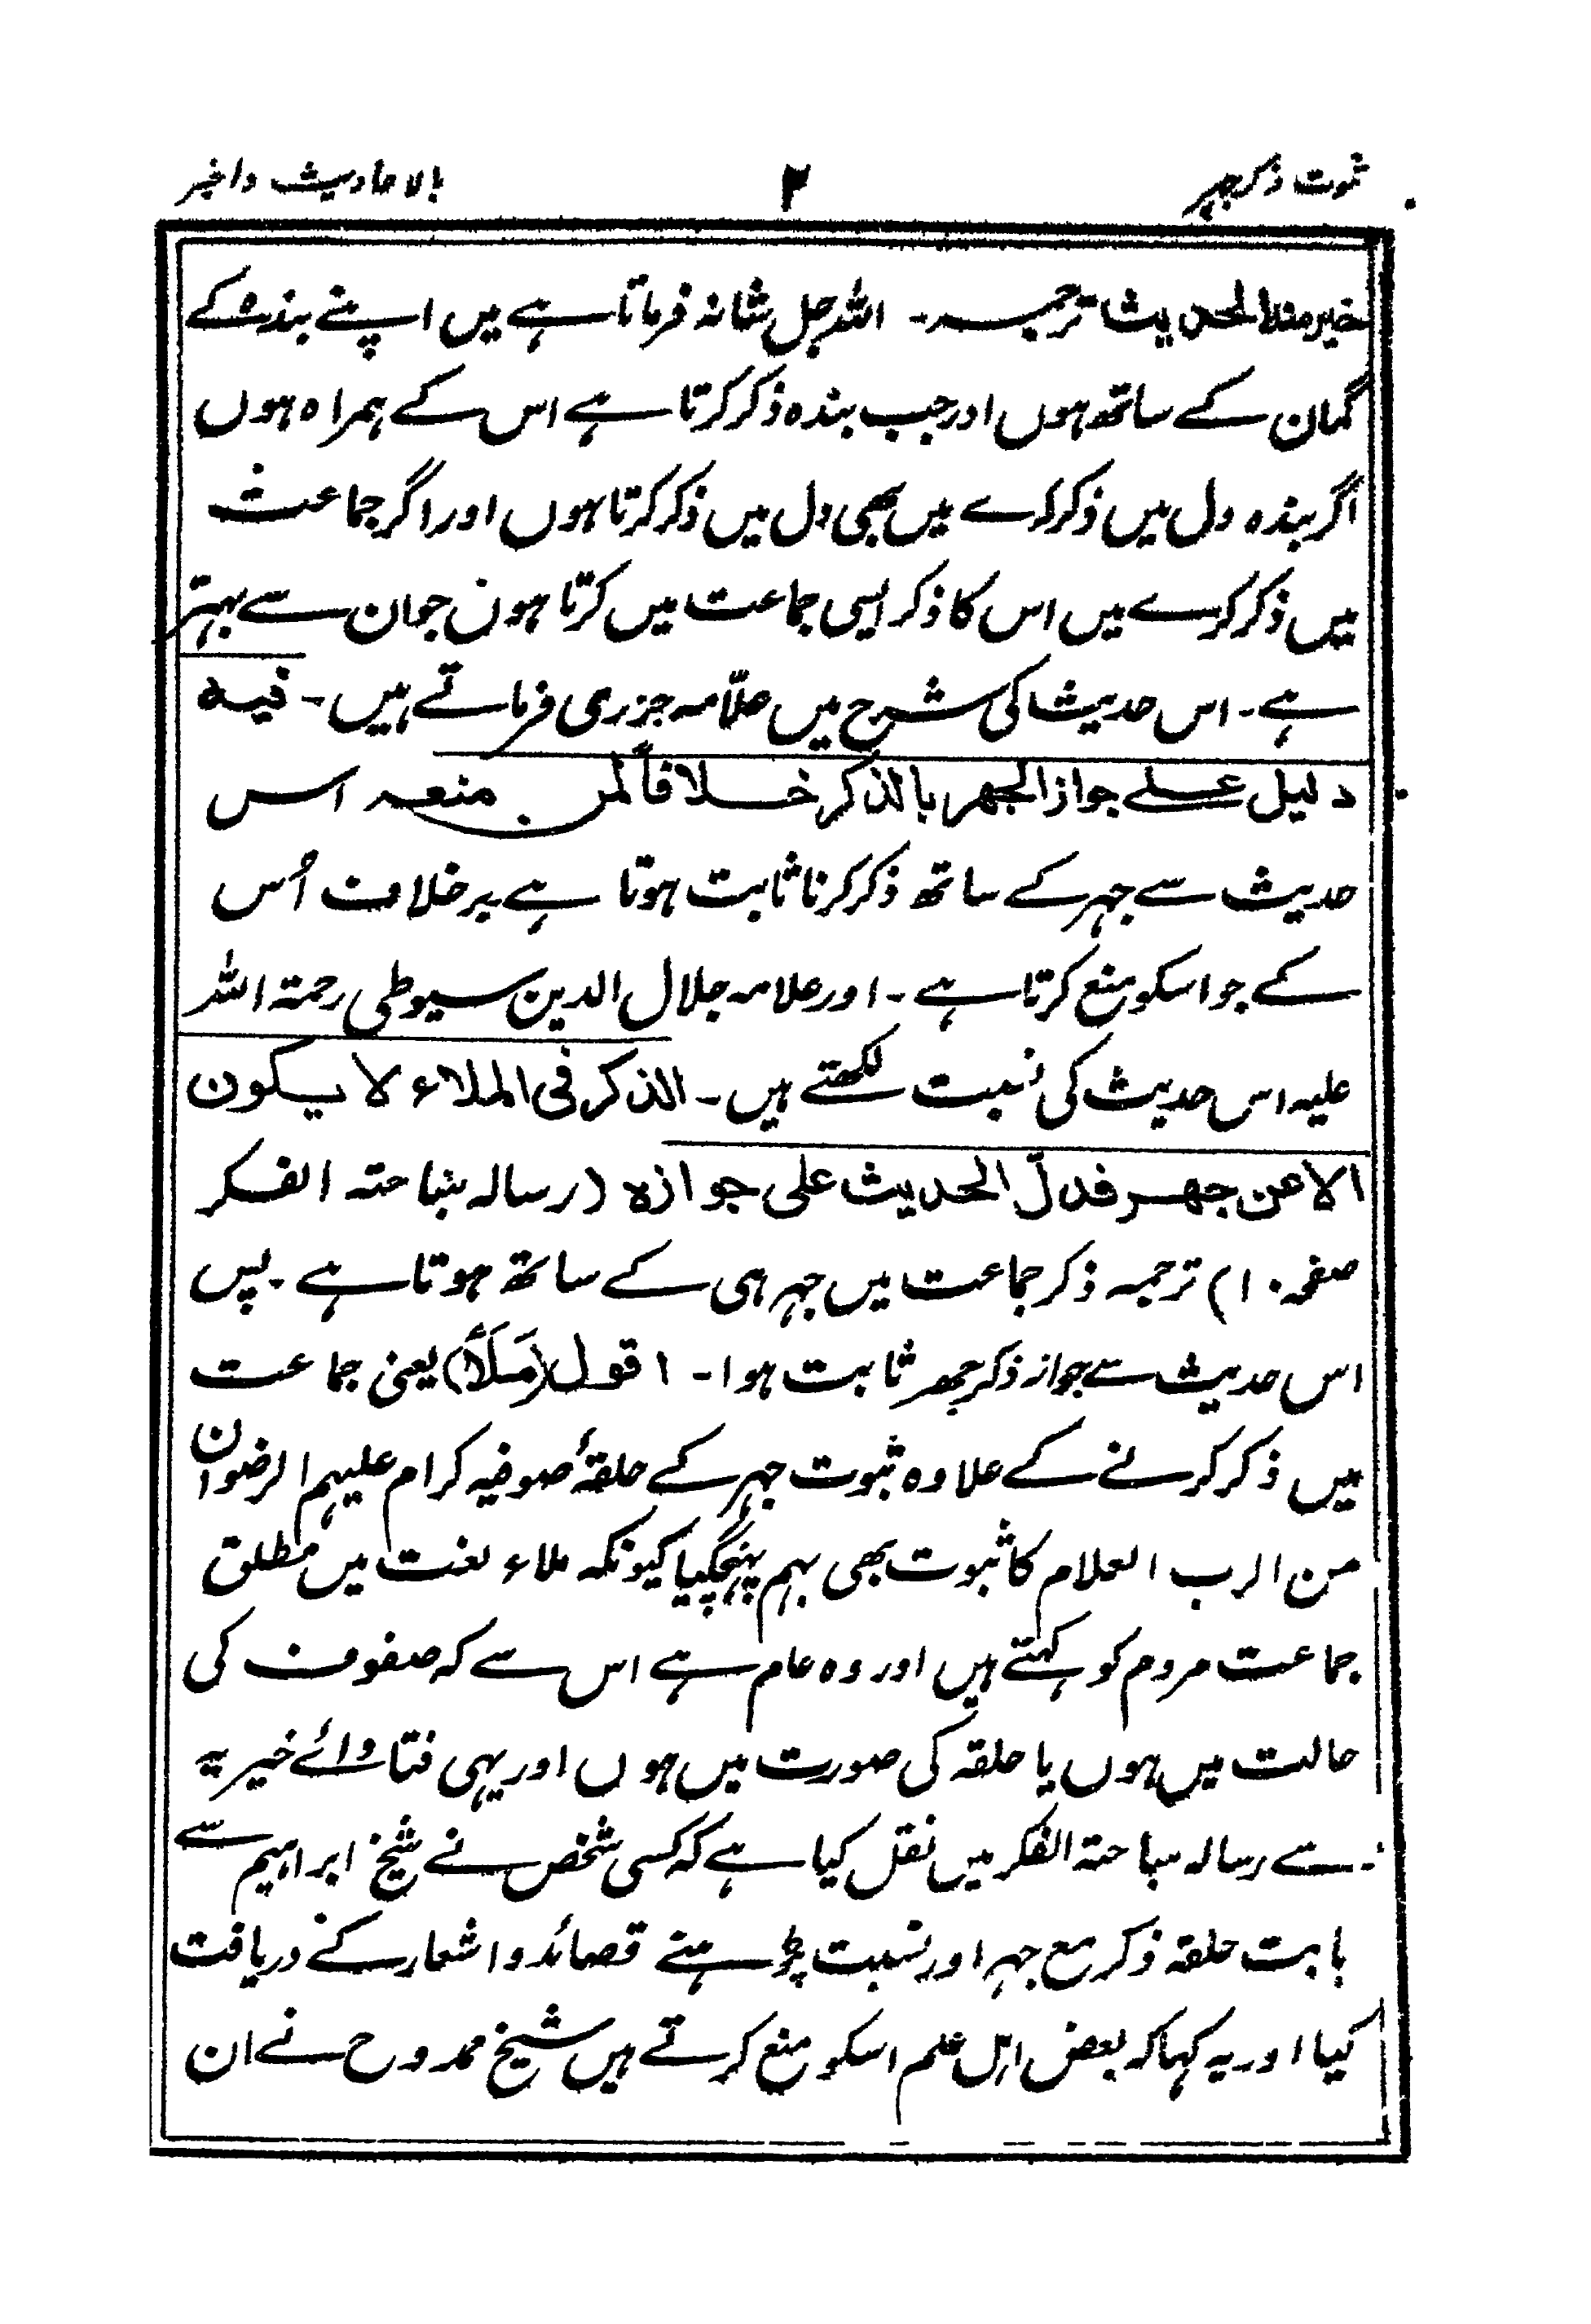 ثبوت ذکر جہر ۲ بالاحادیث والخبر
خیر منہ الحدیث ترجمہ ۔ اللہ جل شانہ فرماتا ہے میں اپنے بندہ کے
گمان کے ساتھ ہوں اور جب بندہ ذکر کرتا ہے اس کے ہمراہ ہوں
اگر بندہ دل میں ذکر کرے میں بھی دل میں ذکر کرتا ہوں اور اگر جماعت
میں ذکر کرے میں اس کا ذکر ایسی جماعت میں کرتا ہون جو ان سے بہتر
ہے ۔ اس حدیث کی شرح میں علّامہ جزری فرماتے ہیں ۔ فیہ
دلیل علے جواز الجھر بالذکر خلافاً لمن منعہ اس
حدیث سے جہر کے ساتھ ذکر کرنا ثابت ہوتا ہے بر خلاف اُس
کے جو اسکو منع کرتا ہے ۔ اور علامہ جلال الدین سیوطی رحمتہ اللہ
علیہ اس حدیث کی نسبت لکھتے ہیں ۔ الذکر فی الملاء لا یکون
الا عن جھر فدلّ الحدیث علی جوازہ (رسالہ سباحتہ الفکر
صفحہ ۱۰) ترجمہ ذکر جماعت میں جہر ہی کے ساتھ ہوتا ہے ۔ پس
اس حدیث سے جواز ذکر جھر ثابت ہوا ۔ اقول (مَلَأ) یعنی جماعت
میں ذکر کرنے کے علاوہ ثبوت جہر کے حلقۂ صوفیہ کرام علیہم الرضوان
من الرب العلام کا ثبوت بھی بہم پہنچگیا کیونکہ ملاء لغت میں مطلق
جماعت مردم کو کہتے ہیں اور وہ عام ہے اس سے کہ صفوف کی
حالت میں ہوں یا حلقہ کی صورت میں ہوں اور یہی فتاوائے خیریہ
سے رسالہ سباحتہ الفکر میں نقل کیا ہے کہ کسی شخص نے شیخ ابراہیم سے
بابت حلقہ ذکر مع جہر اور نسبت پڑہنے قصائد و اشعار کے دریافت
کیا اور یہ کہا کہ بعض اہل علم اسکو منع کرتے ہیں شیخ ممدوح نے ان